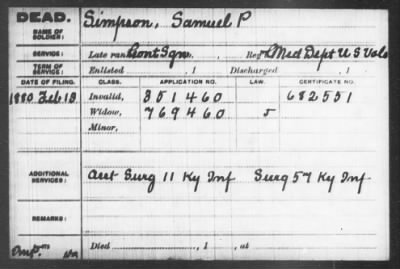 DEAD.
NAME OF SOLDIER:
Simpson, Samuel P
SERVICE:
Late rank, Cont Sgn. Reg't Med Dept U S Vols
TERM OF SERVICE:
Enlisted , 1 Discharged , 1
DATE OF FILING. CLASS. APPLICATION NO. LAW. CERTIFICATE NO.
1880 Feb 18 Invalid, 351460 682551
Widow, 769460
Minor,
ADDITIONAL SERVICES:
Asst Surg 11 Ky Inf Surg 57 Ky Inf
REMARKS:
Died , 1 , at